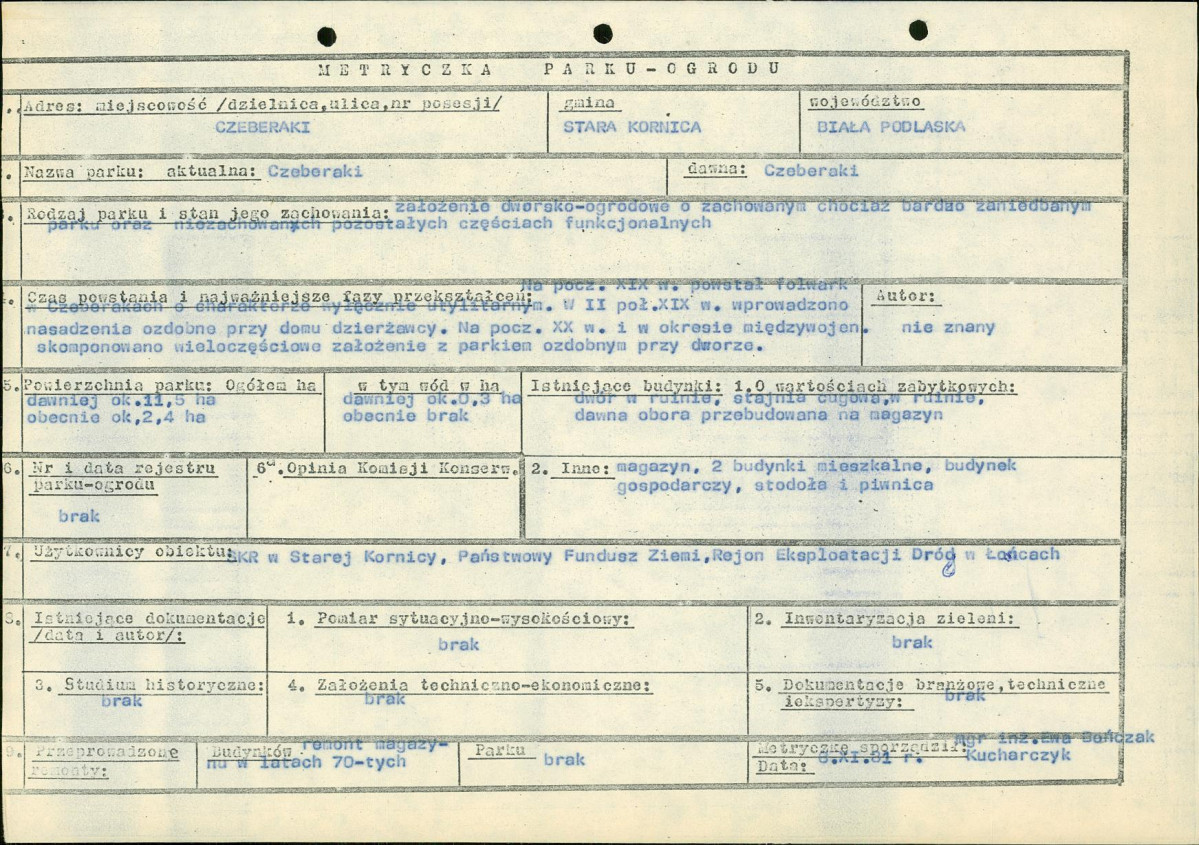 METRYCZKA PARKU-OGRODU
Adres: miejscowość /dzielnica,ulica,nr posesji/
CZEBERAKI
gmina
STARA KORNICA
województwo
BIAŁA PODLASKA
Nazwa parku: aktualna: Czeberaki
dawna: Czeberaki
Rodzaj parku i stan jego zachowania: założenie dworsko-ogrodowe o zachowanym chociaż bardzo zaniedbanym
parku oraz niezachowanych pozostałych częściach funkcjonalnych
Czas powstania i najważniejsze fazy przekształceń: Na pocz. XIX w. powstał folwark
w Czeberakach o charakterze wyłącznie utylitarnym. W II poł.XIX w. wprowadzono
nasadzenia ozdobne przy domu dzierżawcy. Na pocz. XX w. i w okresie międzywojen.
skomponowano wieloczęściowe założenie z parkiem ozdobnym przy dworze.
Autor:
nie znany
5. Powierzchnia parku: Ogółem ha
dawniej ok.11,5 ha
obecnie ok,2,4 ha
w tym wód w ha
dawniej ok.0,3 ha
obecnie brak
Istniejące budynki: 1.O wartościach zabytkowych:
dwór w ruinie, stajnia cugowa,w ruinie,
dawna obora przebudowana na magazyn
6. Nr i datа rejestru
parku-ogrodu
brak
6a. Opinia Komisji Konserw.
2. Inne: magazyn, 2 budynki mieszkalne, budynek
gospodarczy, stodoła i piwnica
7. Użytkownicy obiektu: SKR w Starej Kornicy, Państwowy Fundusz Ziemi,Rejon Eksploatacji Dróg w Łońcach
8. Istniejące dokumentacje
/data i autor/:
1. Pomiar sytuacyjno-wysokościowy:
brak
2. Inwentaryzacja zieleni:
brak
3. Studium historyczne:
brak
4. Założenia techniczno-ekonomiczne:
brak
5. Dokumentacje branżowe,techniczne
iekspertyzy: brak
9. Przeprowadzone
remonty:
Budynków remont magazy-
nu w latach 70-tych
Parku
brak
Metryczkę sporządził: mgr inż.Ewa Bończak
Kucharczyk
Data: 6.XI.81 r.